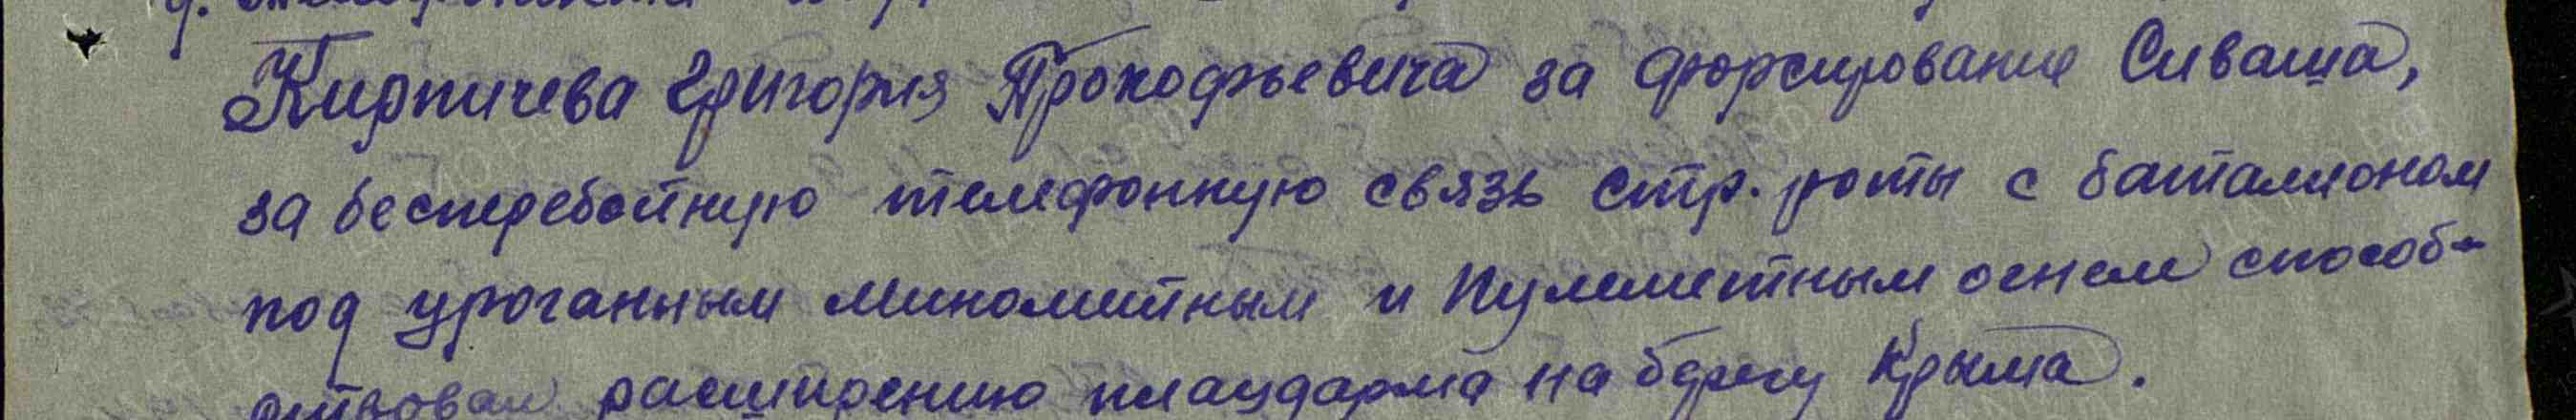 Кирпичева Григория Прокофьевича за форсирование Сиваша,
за бесперебойную телефонную связь стр. роты с баталионом
под уроганным минометным и пулеметным огнем способ-
ствовал расширению плацдарма на берегу Крыма.